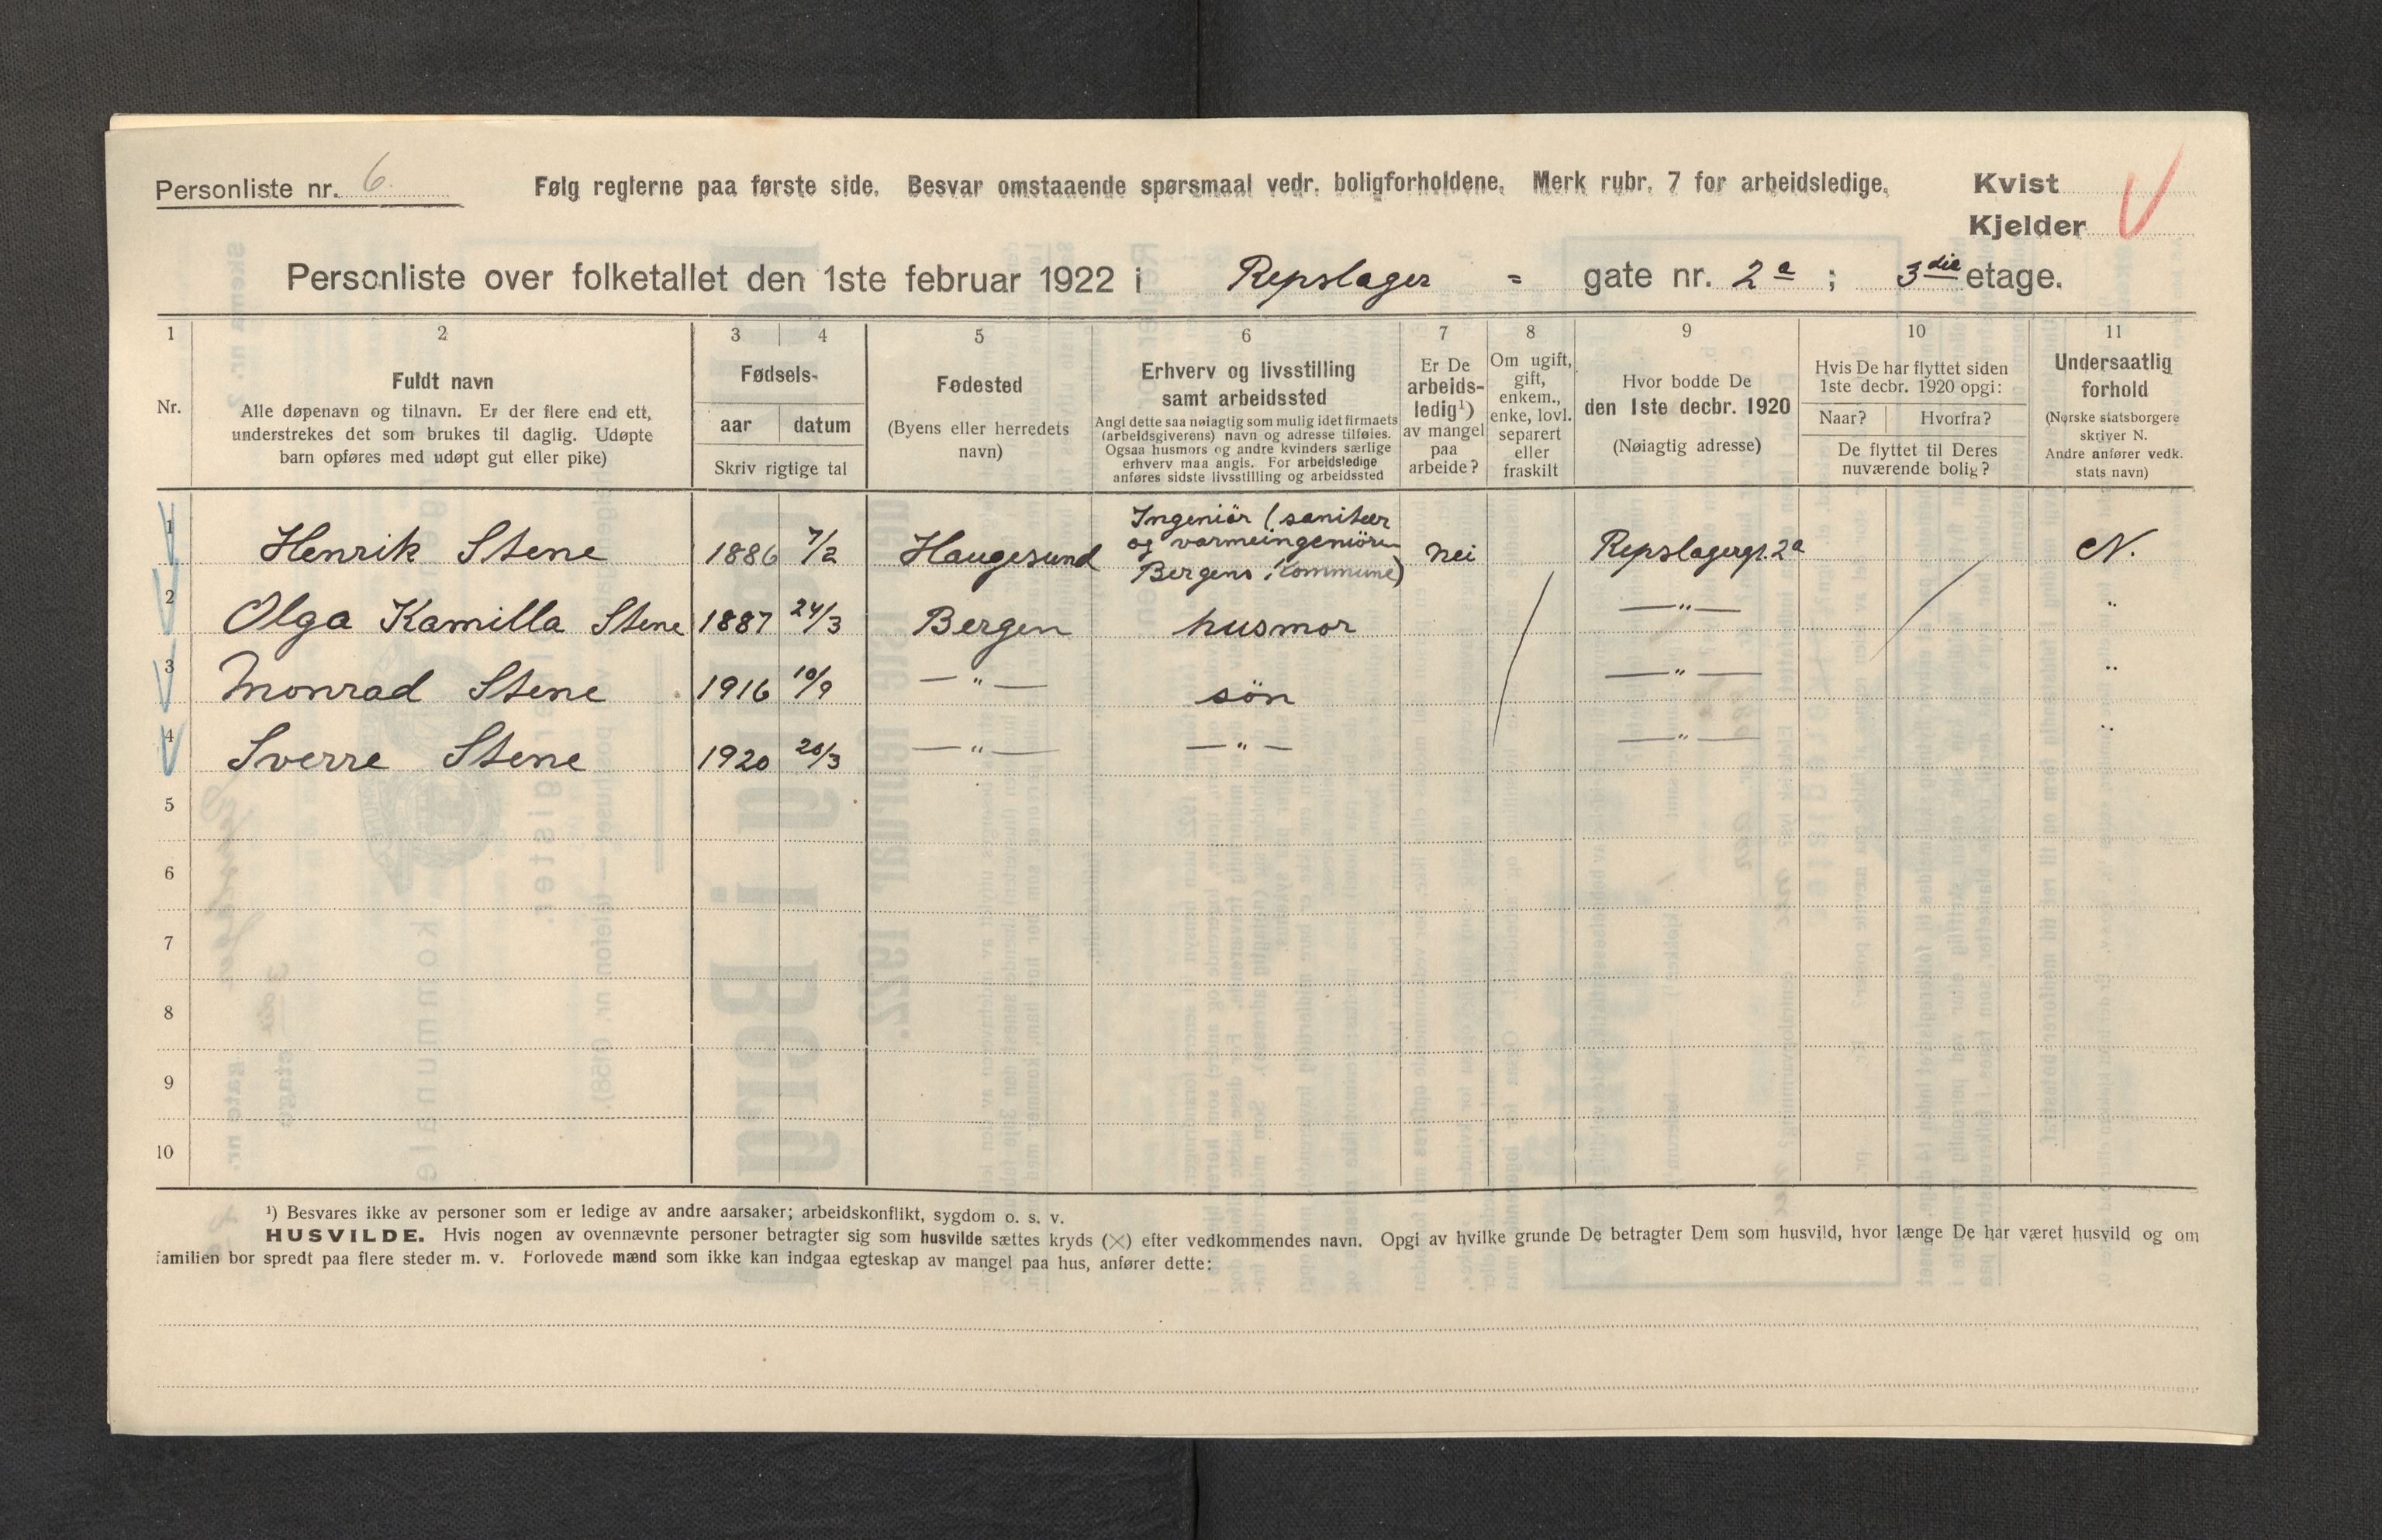 Personliste nr. 6
Følg reglerne paa første side. Besvar omstaaende spørsmaal vedr. boligforholdene. Merk rubr. 7 for arbeidsledige.
Kvist
Kjelder
Personliste over folketallet den 1ste februar 1922 i Repslager = gate nr. 2a ; 3die etage.
1 2 3 4 5 6 7 8 9 10 11
Nr.
Fuldt navn
Alle døpenavn og tilnavn. Er der flere end ett,
understrekes det som brukes til daglig. Udøpte
barn opføres med udøpt gut eller pike)
Fødsels-
aar datum
Skriv rigtige tal
Fødested
(Byens eller herredets
navn)
Erhverv og livsstilling
samt arbeidssted
Angi dette saa nøiagtig som mulig idet firmaets
(arbeidsgiverens) navn og adresse tilføies.
Ogsaa husmors og andre kvinders særlige
erhverv maa angis. For arbeidsledige
anføres sidste livsstilling og arbeidssted
Er De
arbeids-
ledig¹)
av mangel
paa
arbeide?
Om ugift,
gift,
enkem.,
enke, lovl.
separert
eller
fraskilt
Hvor bodde De
den 1ste decbr. 1920
(Nøiagtig adresse)
Hvis De har flyttet siden
1ste decbr. 1920 opgi:
Naar? Hvorfra?
De flyttet til Deres
nuværende bolig?
Undersaatlig
forhold
(Norske statsborgere
skriver N.
Andre anfører vedk.
stats navn)
1 Henrik Stene 1886 7/2 Haugesund Ingeniör (sanitær
og varmeingeniören
Bergens Kommune) Nei Repslagergt. 2a N.
2 Olga Kamilla Stene 1887 24/3 Bergen husmor —"— "
3 Monrad Stene 1916 10/9 —"— sön —"— "
4 Sverre Stene 1920 20/3 —"— —"— —"— "
5
6
7
8
9
10
¹) Besvares ikke av personer som er ledige av andre aarsaker; arbeidskonflikt, sygdom o. s. v.
HUSVILDE. Hvis nogen av ovennævnte personer betragter sig som husvilde sættes kryds (×) efter vedkommendes navn. Opgi av hvilke grunde De betragter Dem som husvild, hvor længe De har været husvild og om
familien bor spredt paa flere steder m. v. Forlovede mænd som ikke kan indgaa egteskap av mangel paa hus, anfører dette: